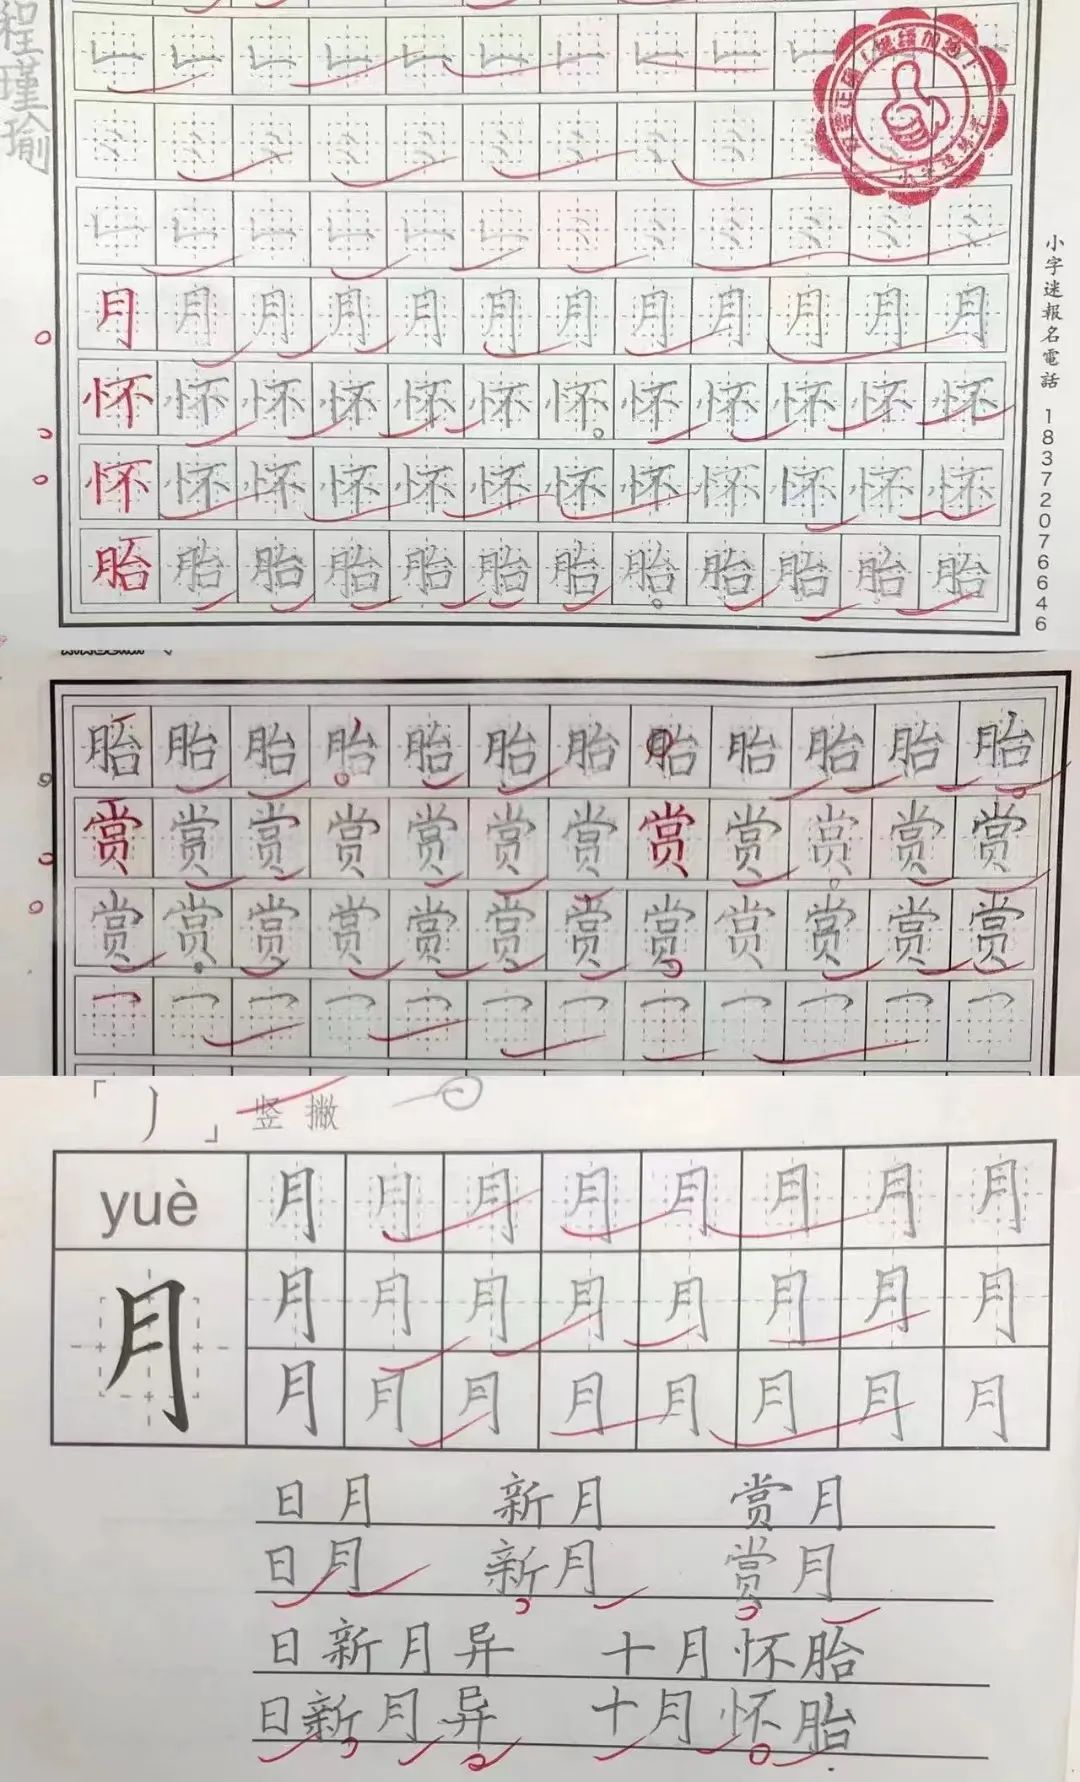 程瑾瑜
小字迷報名電話 18372076646
月月月月月月月月月月月月
怀怀怀怀怀怀怀怀怀怀怀怀
怀怀怀怀怀怀怀怀怀怀怀怀
胎胎胎胎胎胎胎胎胎胎胎胎
胎胎胎胎胎胎胎胎胎胎胎胎
赏赏赏赏赏赏赏赏赏赏赏赏
赏赏赏赏赏赏赏赏赏赏赏赏
「丿」竖撇
yuè 月月月月月月月月
月 月月月月月月月月
月月月月月月月月
日月 新月 赏月
日月 新月 赏月
日新月异 十月怀胎
日新月异 十月怀胎